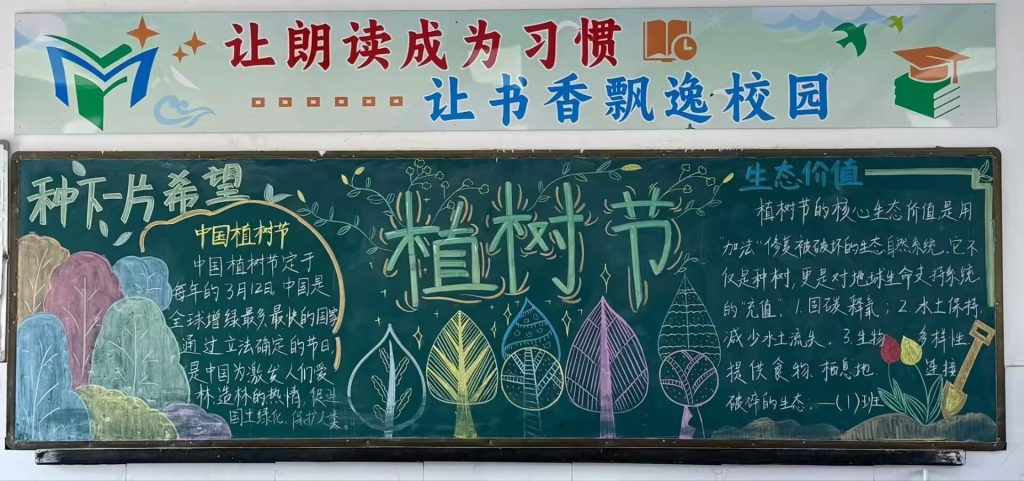 让朗读成为习惯
让书香飘逸校园
种下一片希望
中国植树节
中国植树节定于
每年的3月12日中国是
全球增绿最多最快的国家
通过立法确定的节日,
是中国为激发人们爱
林造林的热情,促进
国土绿化,保护人类。
植树节
生态价值
植树节的核心生态价值是用
"加法"修复被破坏的生态自然系统,它不
仅是种树,更是对地球生命支持系统
的"充值"。1.固碳释氧;2.水土保持,
减少水土流失。3.生物多样性
提供食物,栖息地,连接
破碎的生态.—(1)班